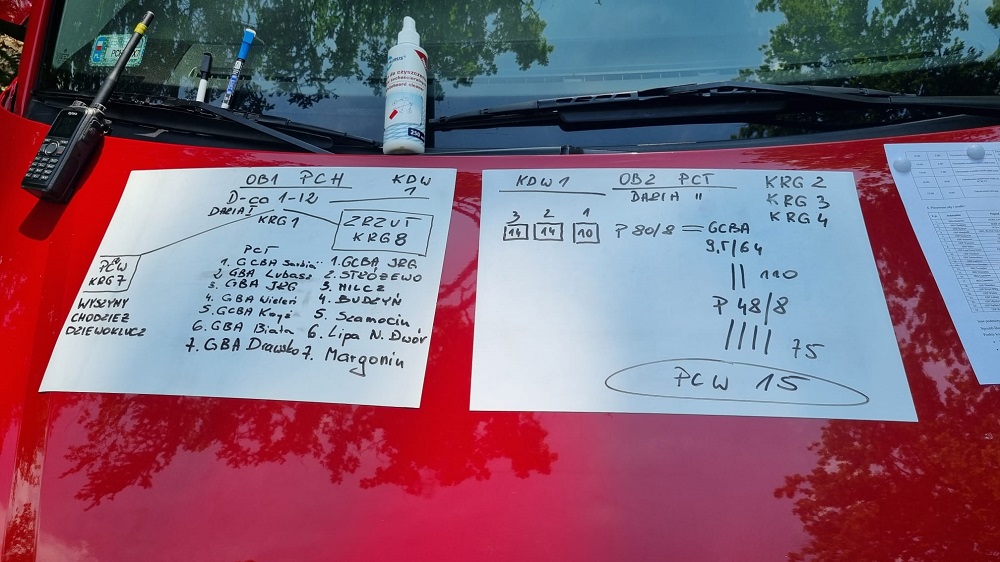 OB1 PCH KDW 1
D-ca 1-12
DARIA I
KRG1
ZRZUT
KRG8
PCW
KRG7
WYSZYNY
CHODZIEŻ
DZIEWOKLUCZ
PCT
1. GCBA Sarbia
2. GBA Lubasz
3. GBA JRG
4. GBA Wieleń
5. GCBA
6. GBA Biała
7. GBA Drawsko
1. GCBA JRG
2. STRÓŻEWO
3. MILCZ
4. BUDZYŃ
5. Szamocin
6. Lipa N. Dwór
7. Margonin
KDW1 OB2 PCT KRG2
DARIA II KRG3
KRG4
3 2 1
14 14 10
P 80/8 = GCBA
9,5/64
|| 110
P 48/8
|||| 75
PCW 15